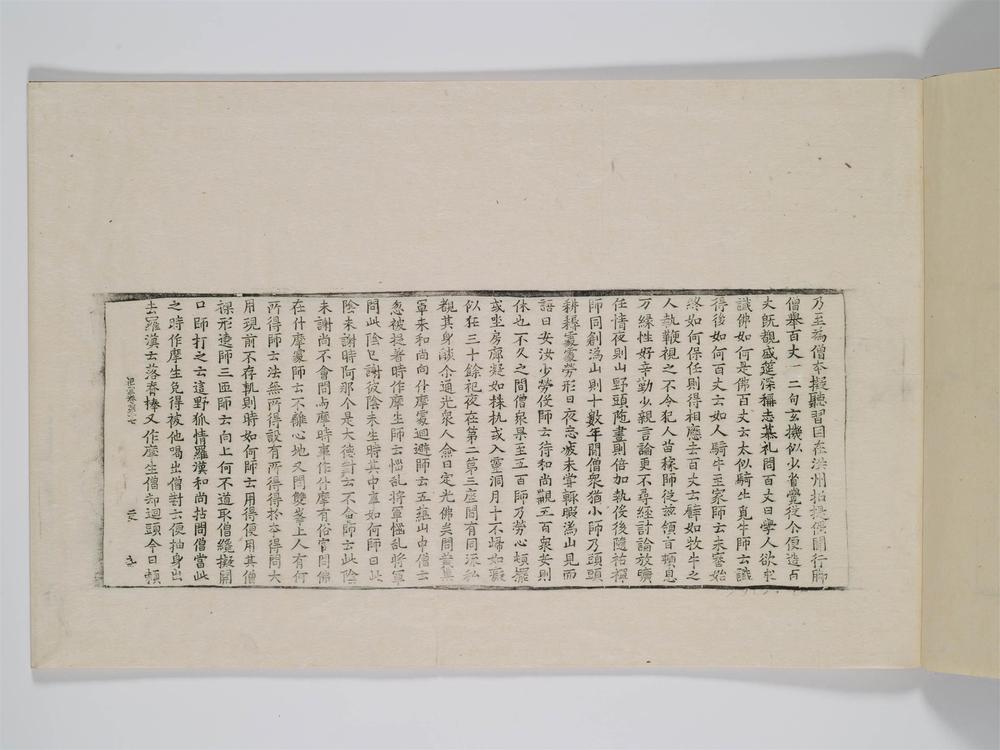 乃至爲僧本擬聽習因在洪州怕撓便開行脚
僧舉百丈一二句玄機似少省覺從介便造百
丈旣覩盛筵深稱志慕礼問百丈曰學人欲求
識佛如何是佛百丈云太似騎牛覓牛師云識
得後如何百丈云如人騎牛至家師云未審始
終如何保任則得相應去百丈云譬如牧牛之
人執鞭視之不令犯人苗稼師從諮領旨頓息
万緣性好辛勤少親言論更不尋經討論放曠
任情夜則山野頭陁晝則倍加執役後隨祐禪
師同創潙山則十數年間僧衆猶小師乃頭頭
耕耨處處勞形日夜忘疲未嘗輒暇潙山見而
語曰安汝少勞役師云待和尚觀五百衆安則
休也不久之間僧衆果至五百師乃勞心頓擺
或坐房廊凝如株杌或入靈洞月十不歸如癡
似狂三十餘祀夜在第二第三座間有同流私
觀其身皎介通光衆人僉曰定光佛矣問叢集
軍來和尚向什摩處迴避師云五蘊山中僧云
忽被捉著時作摩生師云惱乱將軍惱乱將軍
問此陰已謝彼陰未生時其中事如何師曰此
陰未謝時阿那个是大德對云不會師云此陰
未謝尚不會問當摩時事作什摩有俗官問佛
在什摩處師云不離心地又問雙峯上人有何
所得師云法無所得設有所得得於本得問大
用現前不存軌則時如何師云用得便用其僧
裸形遶師三匝師云向上何不道取僧纔擬開
口師打之云這野狐情羅漢和尚拈問僧當此
之時作摩生免得被他喝出僧對云便抽身出
去羅漢云落脊棒又作麽生僧却迴頭今日賴